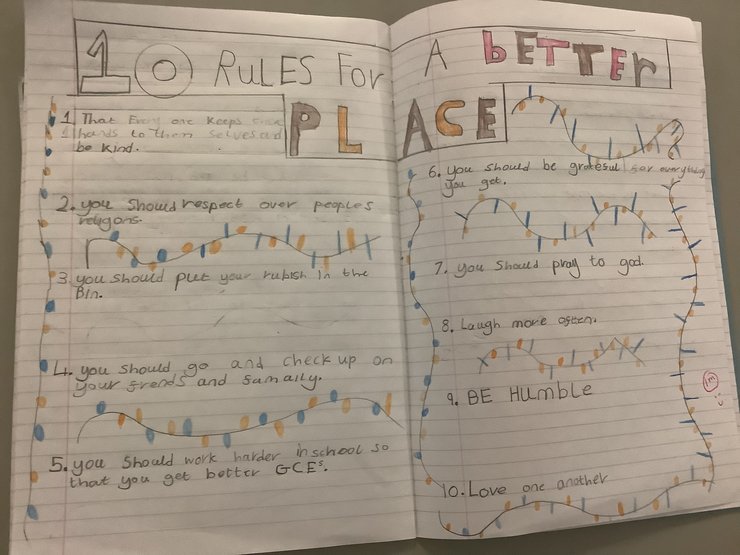 10 RULES FOR A BETTER
PLACE
1 That Every one keeps
hands to them selves and
be kind.
2. you should respect over peoples
religons.
3. you should put your rubish in the
Bin.
4. you should go and check up on
your frends and famaily.
5. you should work harder in school so
that you get better GCEs.
6. you should be grateful for everything
you get.
7. you should pray to god.
8. Laugh more often.
9. BE HUmble
10. Love one another